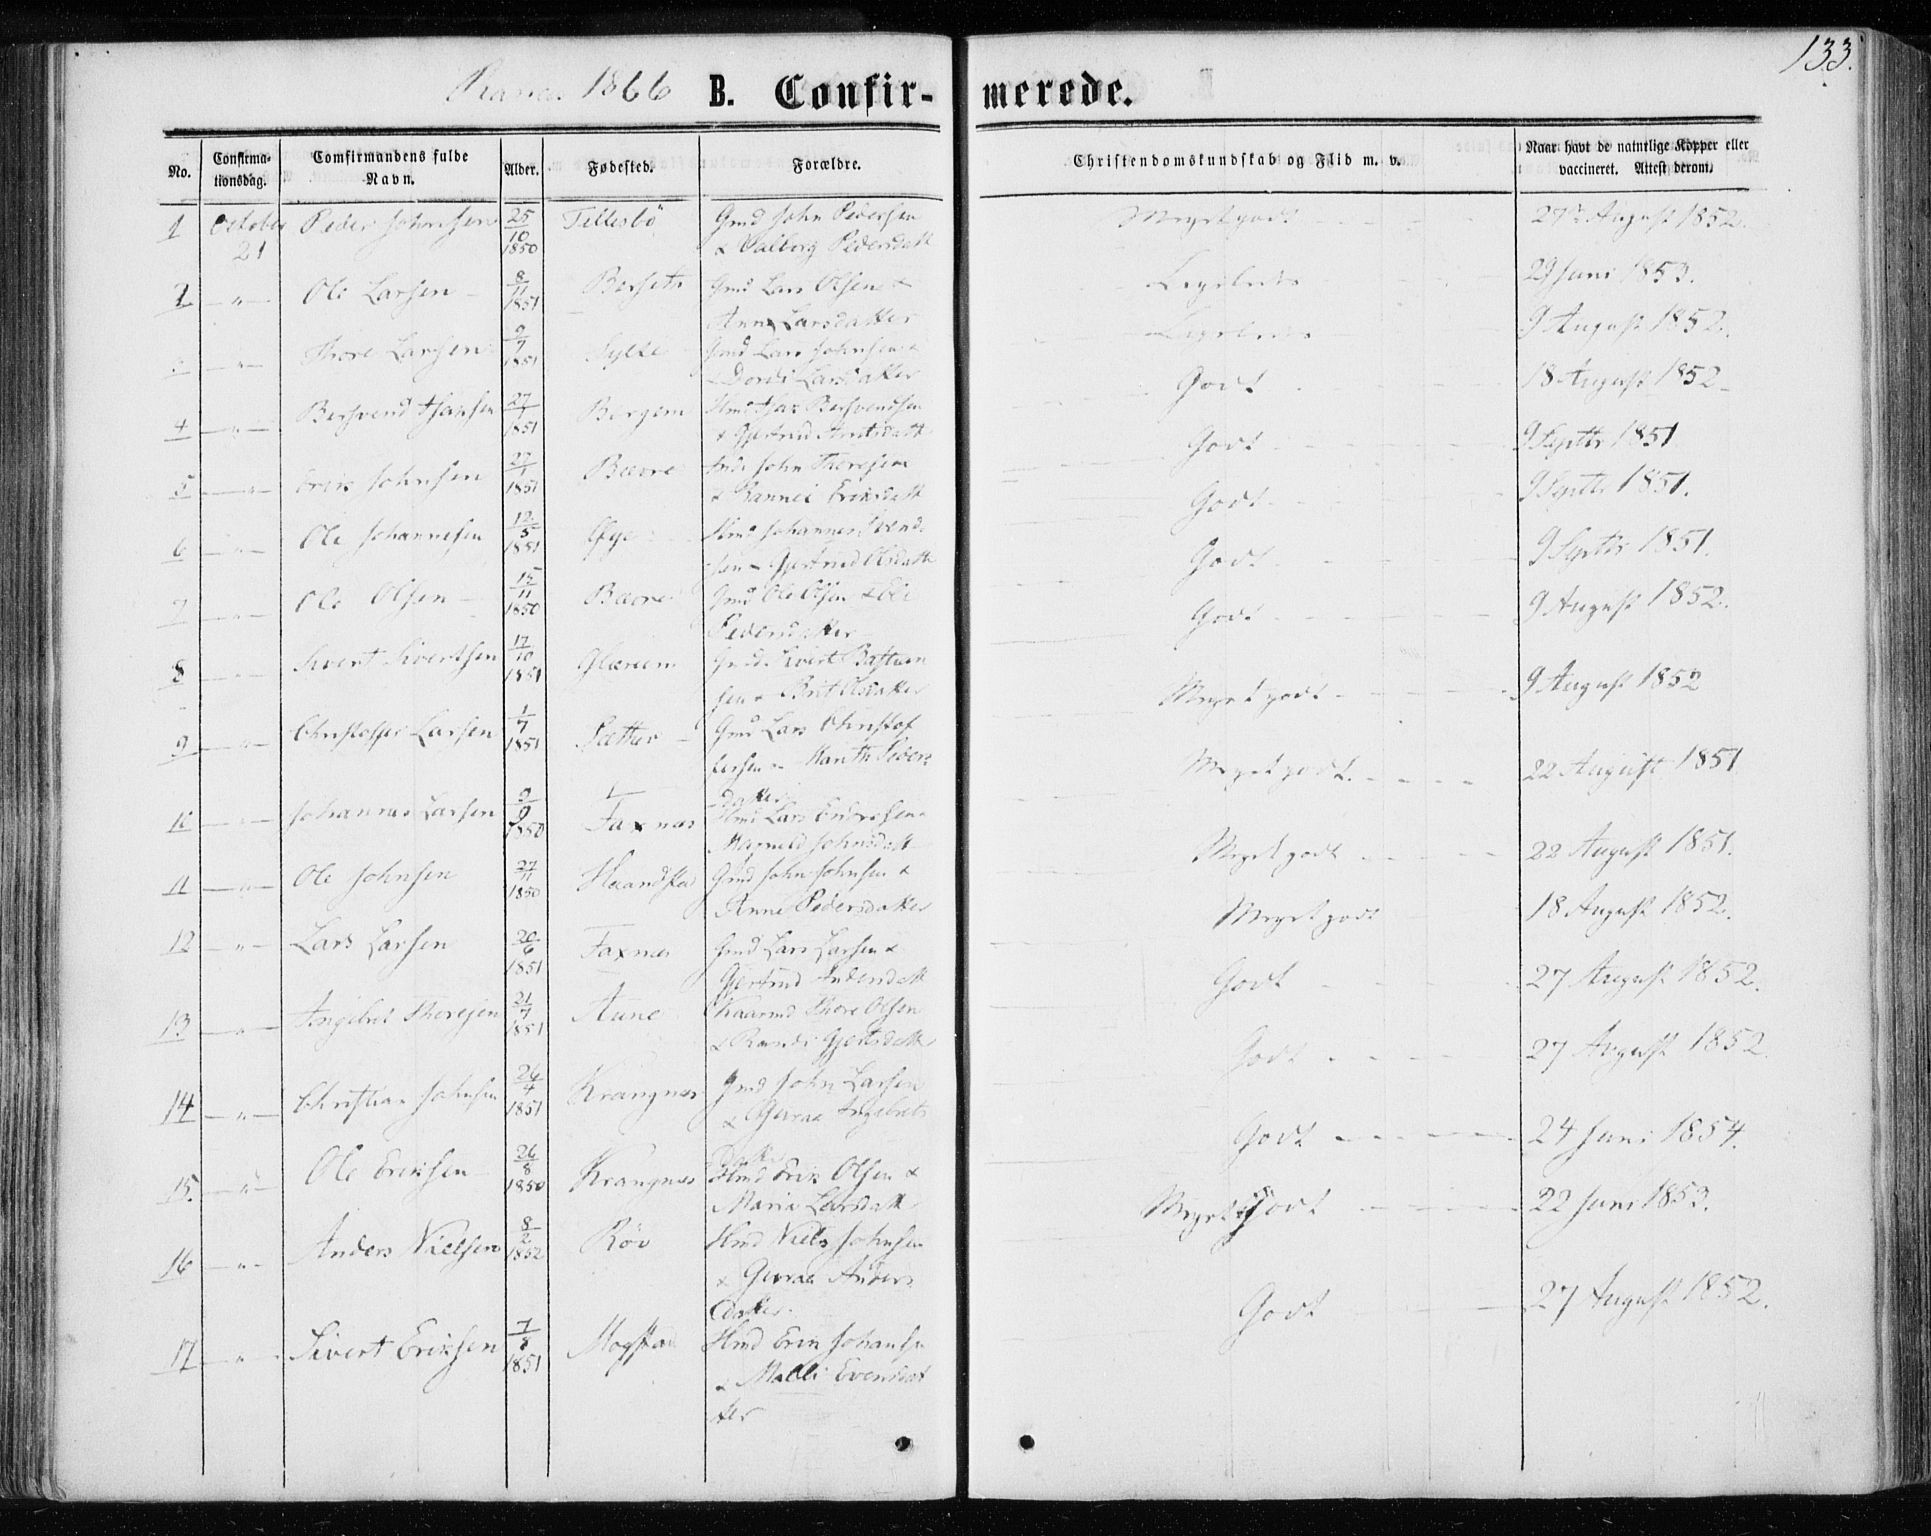 133.
Ranes 1866 B. Confir-merede.
No. Confirma-tionsdag. Comfirmandens fulde Navn. Alder. Fødested. Forældre. Christendomskundskab og Flid m. v. Naar havt de naturlige Kopper eller vaccineret. Attest derom.
1 October 21 Peder Johnsen 25/10 1850 Tellesbö Gmd John Pedersen Meget godt 27de August 1852.
& Valborg Pedersdatt
2 " Ole Larsen 8/11 1851 Bersett Gmd Lars Olsen & 29 Juni 1853.
Anne Larsdatter
" Thore Larsen 1851 Sylte Gmd Lars Johnsen 9 August 1852.
& Dordi Larsdatter
4 " Bersvend Isaksen 27/1 1851 Bergem Hmd Isac Bersvendsen Godt 18 August 1852
& Gjertrud Arntsdatt
5 " Erik Johnsen 27/1 1851 Bævre John Thoresen Godt 9 Septbr 1851
& Rannei Eriksdatt
6 " Ole Johannesen 12/5 1851 Øye Hmd Johannes Svend- Godt 9 Septbr 1851.
sen & Gjertrud Olsdatt
7 " Ole Olsen 15/11 1850 Bævre Gmd Ole Olsen & Eli Godt 9 Septbr 1851.
Pedersdatter
8 " Sivert Sivertsen 17/10 1851 Glæreem Gmd Sivert Bastian Godt 9 August 1852.
sen & Brit Olsdatter
9 " Christoffer Larsen 1/7 1851 Sæther Gmd Lars Christof Meget godt 9 August 1852
fersen & Marith Siverts
datter
10 " Johannes Larsen 9/9 1850 Faxnæs Hmd Lars Endresen Meget godt 22 August 1851
Magnild Johnsdatt
11 " Ole Johnsen 27/11 1850 Haandstad Gmd John Johnsen & Meget godt 22 August 1851.
Anne Pedersdatter
12 " Lars Larsen 20/6 1851 Faxnæs Gmd Lars Larsen & Meget godt 18 August 1852.
Gjertrud Andersdatt
13 " Ingebret Thoresen 21/7 1851 Aune Kaarmd Thore Olsen Godt 27 August 1852.
& Randi Gjertsdatt
14 " Christian Johnsen 26/4 1851 Krangnæs Gmd John Larsen Godt 27 August 1852.
& Guraa Ingebrets
datter
15. " Ole Eriksen 26/8 1850 Krangnæs Hmd Erik Olsen & Godt 24 Juni 1854.
Maria Larsdatt
16 " Anders Nielsen 8/2 1852 Röv Hmd Niels Johnsen Meget godt 22 Juni 1853.
& Guraa Anders
datter.
17 " Sivert Eriksen 7/8 1851 Mogstad Hmd Erik Johansen Godt 27 August 1852.
& Malli Evensdat
ter